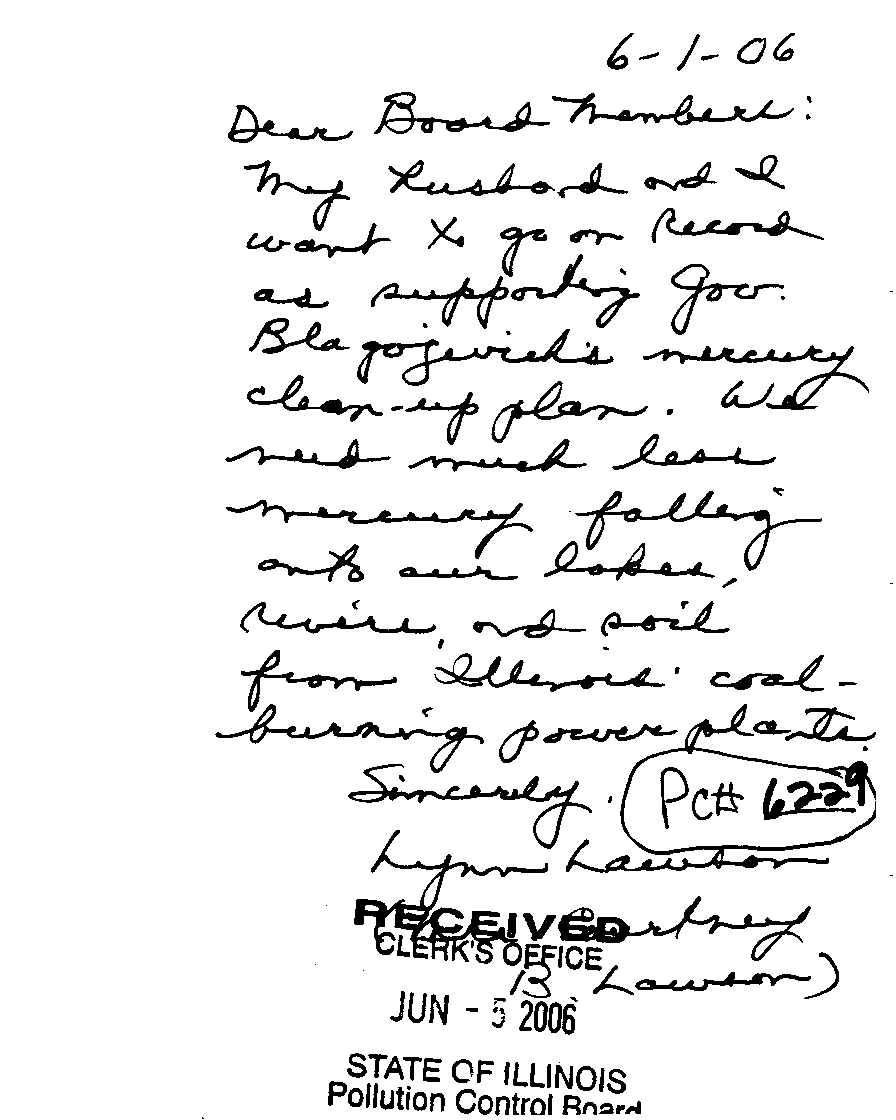 6-1-06
Dear Board Members:
My husband and I
want to go on record
as supporting Gov.
Blagojevich's mercury
clean-up plan. We
need much less
mercury falling
onto our lakes,
rivers, and soil
from Illinois' coal-
burning power plants.
Sincerely,
PC# 6229
Lynn Lawson
RECEIVED
CLERK'S OFFICE
B Lawson)
JUN - 5 2006
STATE OF ILLINOIS
Pollution Control Board